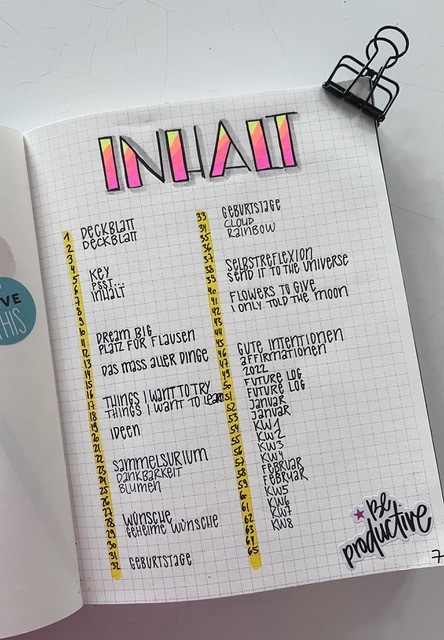 INHALT
1 DECKBLATT
2 DECKBLATT
3
4 KEY
5 PSST...
6 INHALT
7
8
9
10 DREAM BIG
11 PLATZ FÜR FLAUSEN
12
13 DAS MASS ALLER DINGE
14
15
16 THINGS I WANT TO TRY
17 THINGS I WANT TO LEARN
18
19 IDEEN
20
21
22 SAMMELSURIUM
23 DANKBARKEIT
24 BLUMEN
25
26
27 WÜNSCHE
28 GEHEIME WÜNSCHE
29
30
31
32 GEBURTSTAGE
33 GEBURTSTAGE
34 CLOUD
35 RAINBOW
36
37 SELBSTREFLEXION
38 SEND IT TO THE UNIVERSE
39
40 FLOWERS TO GIVE
41 I ONLY TOLD THE MOON
42
43
44
45 GUTE INTENTIONEN
46 AFFIRMATIONEN
47 2022
48 FUTURE LOG
49 FUTURE LOG
50 JANUAR
51 JANUAR
52 KW1
53 KW2
54 KW3
55 KW4
56 FEBRUAR
57 FEBRUAR
58 KW5
59 KW6
60 KW7
61 KW8
62
63
64
65
Be
productive
7
VE
THIS